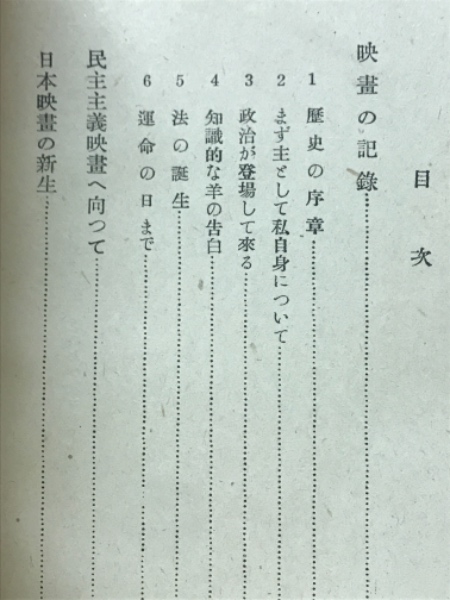 目次
映畫の記錄
1 歷史の序章
2 まず主として私自身について
3 政治が登場して來る
4 知識的な羊の告白
5 法の誕生
6 運命の日まで
民主主義映畫へ向つて
日本映畫の新生